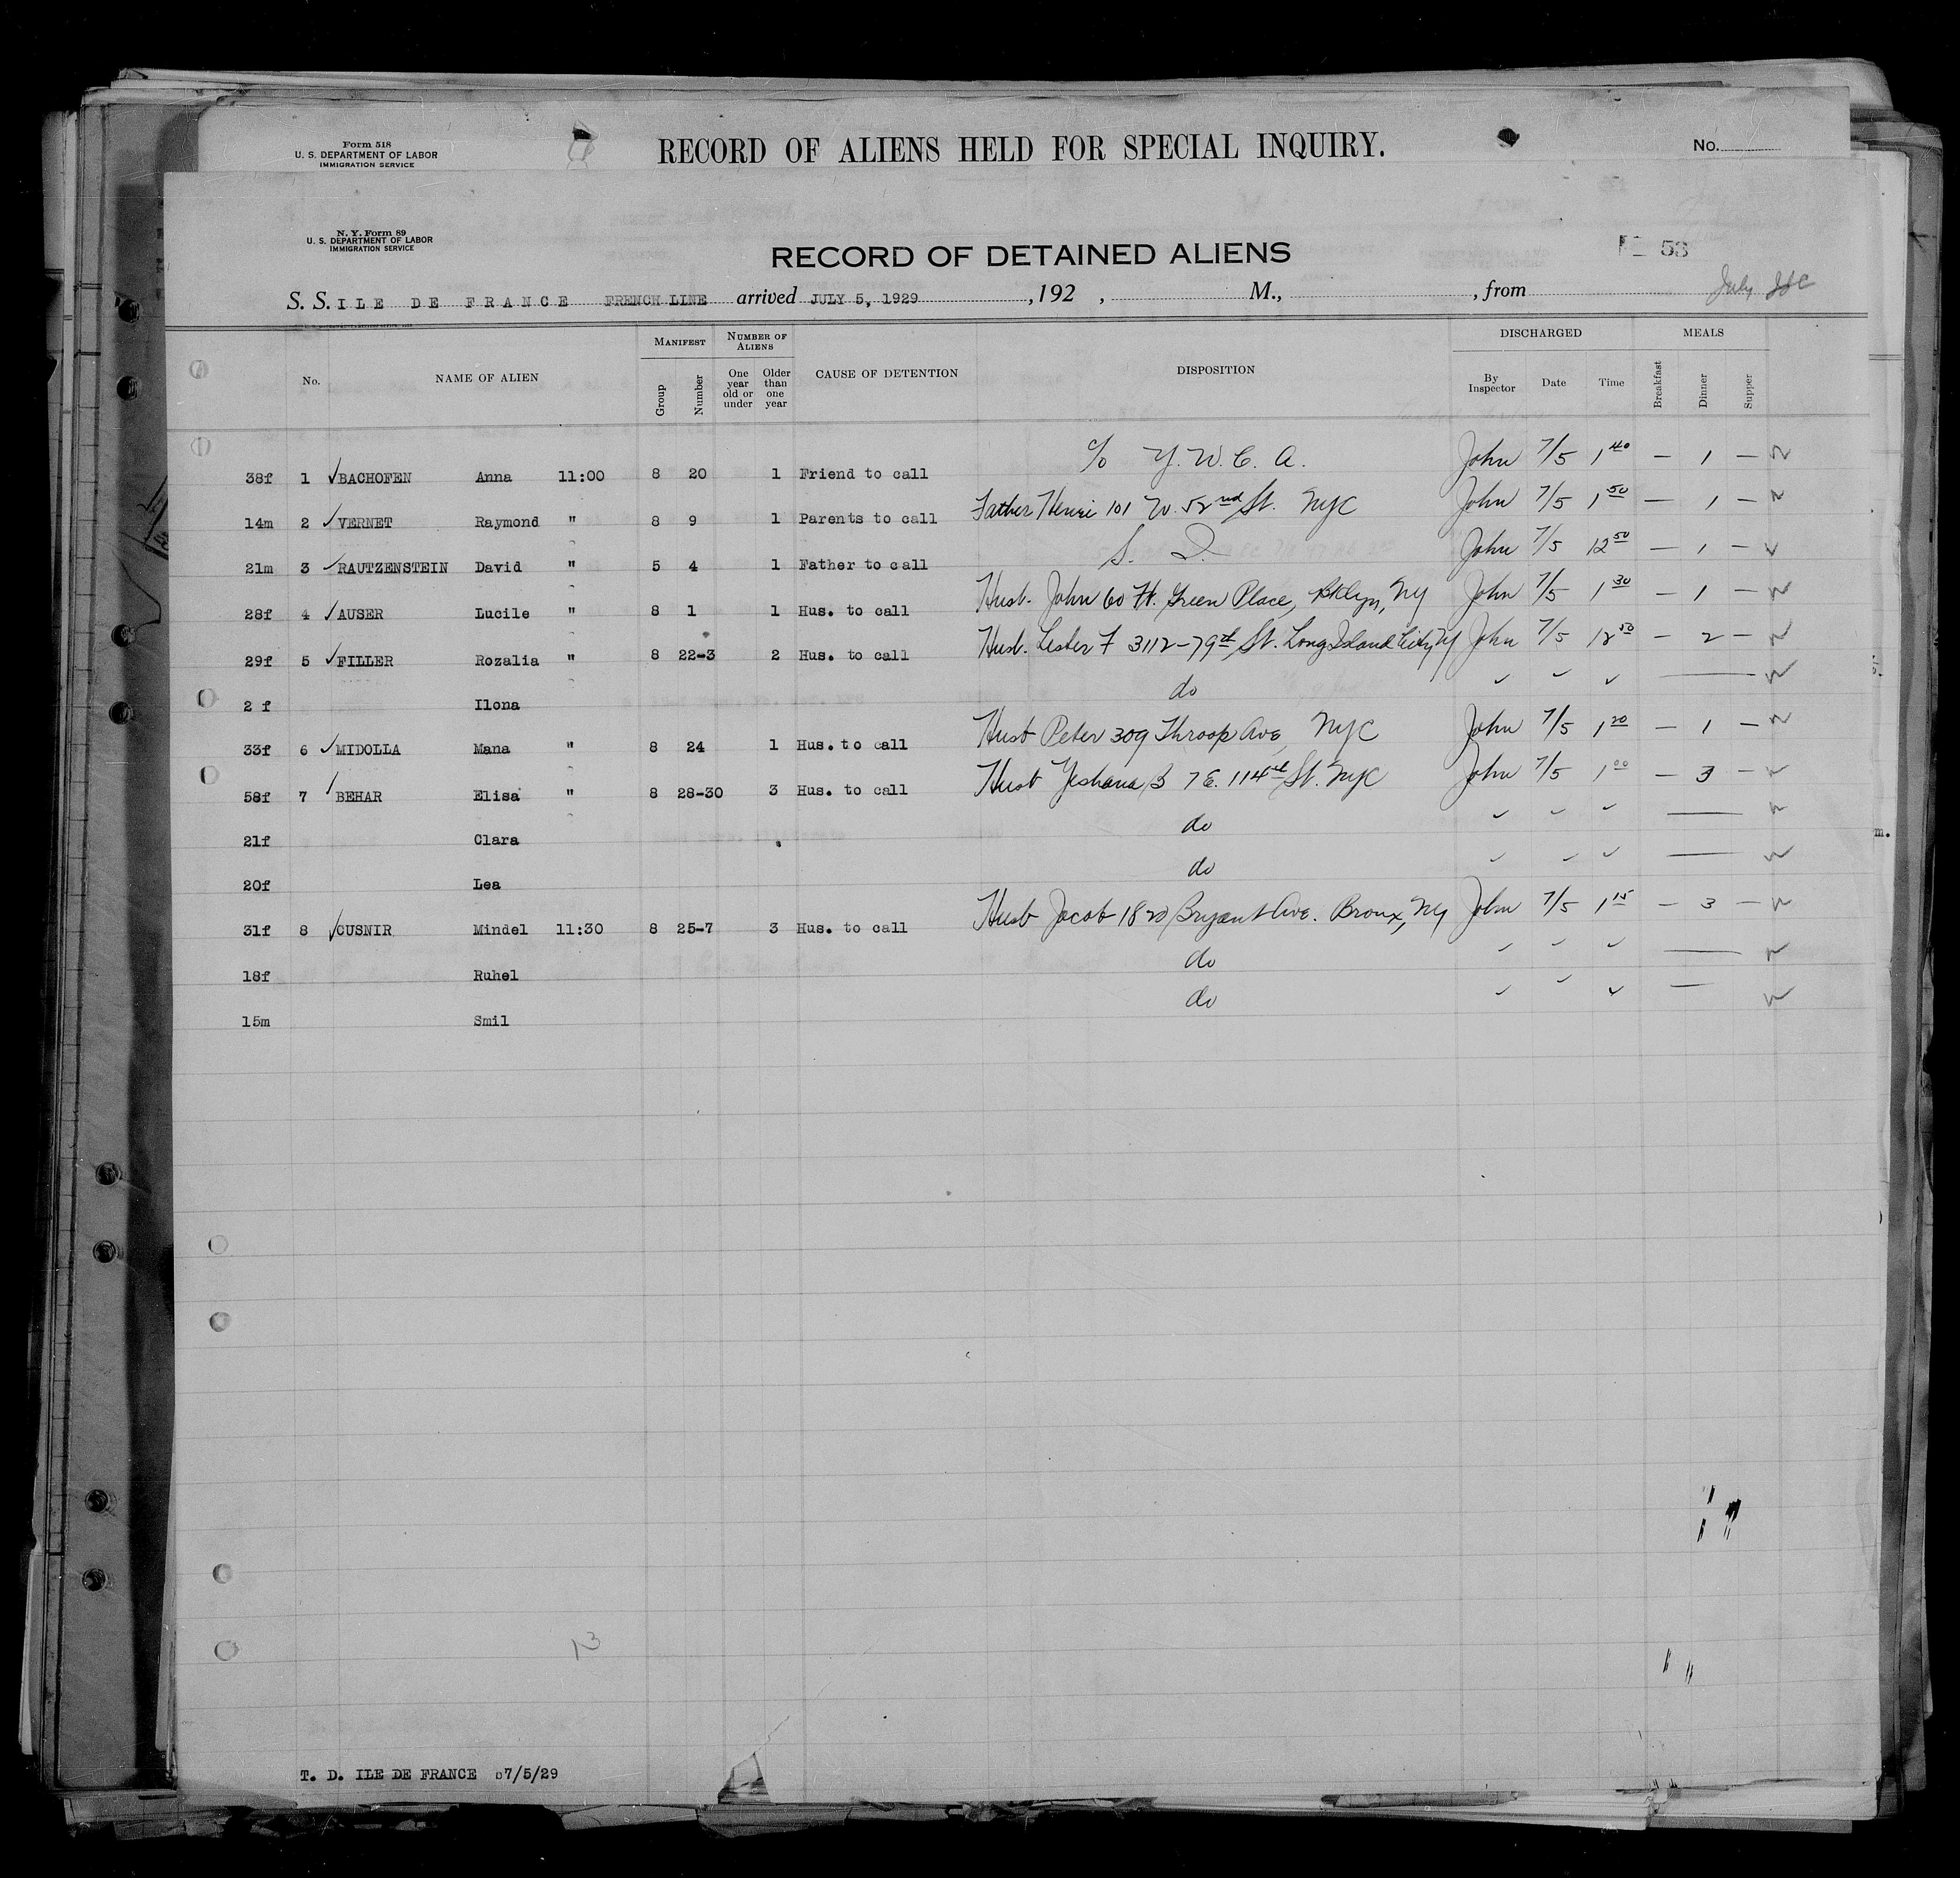 Form 518
U. S. DEPARTMENT OF LABOR
IMMIGRATION SERVICE
RECORD OF ALIENS HELD FOR SPECIAL INQUIRY.
No.
N. Y. Form 89
U. S. DEPARTMENT OF LABOR
IMMIGRATION SERVICE
RECORD OF DETAINED ALIENS
53
S. S. ILE DE FRANCE FRENCH LINE arrived JULY 5, 1929, 192 , M., , from
July
No. NAME OF ALIEN MANIFEST Group Number NUMBER OF ALIENS One year old or under Older than one year CAUSE OF DETENTION DISPOSITION DISCHARGED By Inspector Date Time MEALS Breakfast Dinner Supper
38f 1 ✓BACHOFEN Anna 11:00 8 20 1 Friend to call c/o Y. W. C. A. John 7/5 1 40 — 1 —
14m 2 ✓VERNET Raymond " 8 9 1 Parents to call Father Henri 101 W. 52nd St. NYC John 7/5 1 50 — 1 —
21m 3 ✓RAUTZENSTEIN David " 5 4 1 Father to call S. I. John 7/5 12 50 — 1 —
28f 4 ✓AUSER Lucile " 8 1 1 Hus. to call Husb. John 60 Ft. Green Place, Bklyn, NY John 7/5 1 30 — 1 —
29f 5 ✓FILLER Rozalia " 8 22-3 2 Hus. to call Husb. Lester F 3112-79th St. Long Island City NY John 7/5 12 50 — 2 —
2 f Ilona do ✓ ✓ ✓ —
33f 6 ✓MIDOLLA Mana " 8 24 1 Hus. to call Husb Peter 309 Throop Ave, NYC John 7/5 1 20 — 1 —
58f 7 ✓BEHAR Elisa " 8 28-30 3 Hus. to call Husb B 7 E. 114th St. NYC John 7/5 1 00 — 3 —
21f Clara do ✓ ✓ ✓ —
20f Lea do ✓ ✓ ✓ —
31f 8 ✓CUSNIR Mindel 11:30 8 25-7 3 Hus. to call Husb Jacob 1820 Bryant Ave. Bronx, NY John 7/5 1 15 — 3 —
18f Ruhel do ✓ ✓ ✓ —
15m Smil do ✓ ✓ ✓ —
m.
13
T. D. ILE DE FRANCE 7/5/29